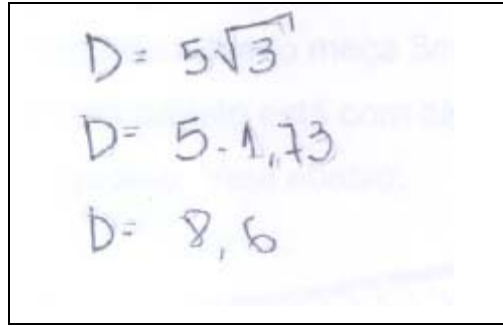 D = 5√3
D = 5 . 1,73
D = 8,6